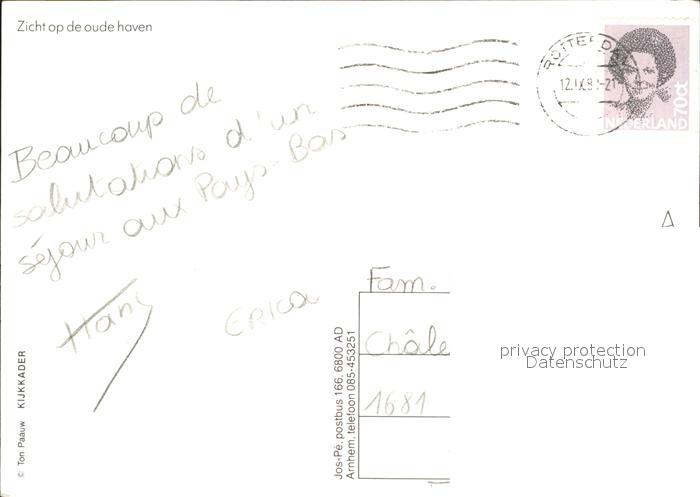 Zicht op de oude haven
ROTTERDAM
12.IX.8
-21
70ct
NEDERLAND
Beaucoup de
salutations d'un
séjour aux Pays-Bas
Hans
Erica
Fam.
Châle
1681
privacy protection
Datenschutz
Jos-Pé, postbus 166, 6800 AD
Arnhem, telefoon 085-453251
© Ton Paauw KIJKKADER